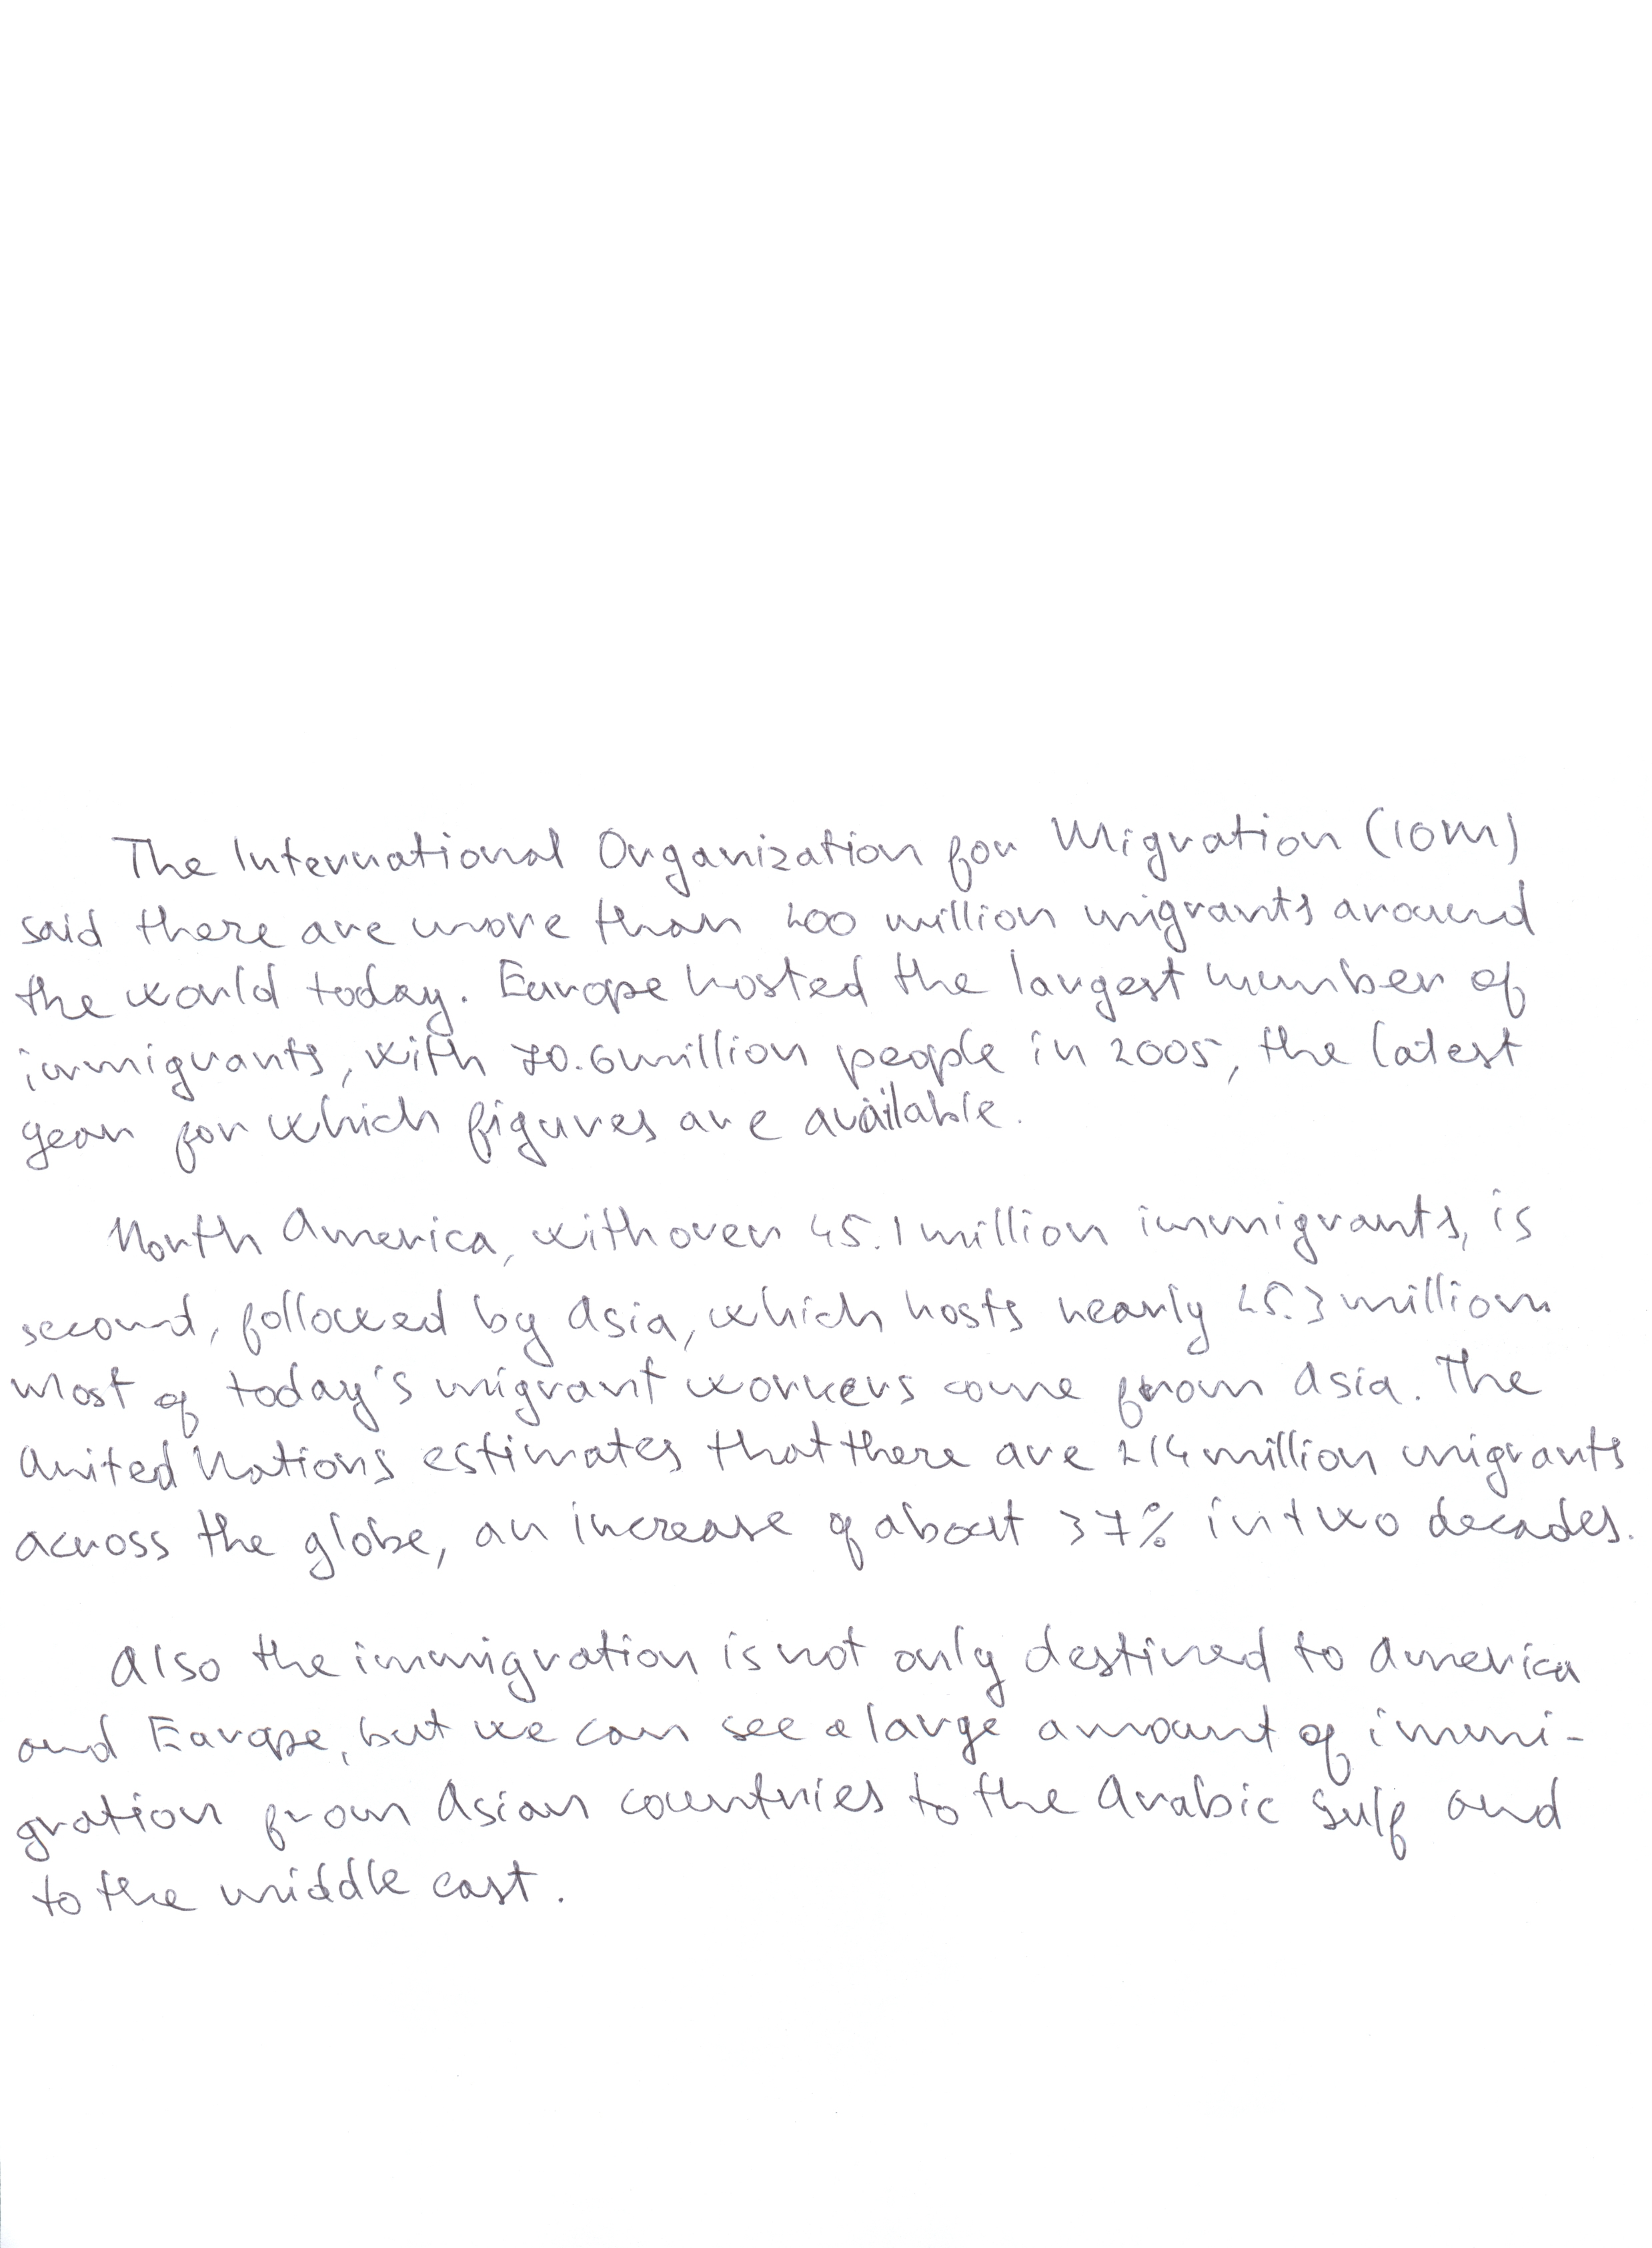 The International Organization for Migration (IOM)
said there are more than 200 million migrants around
the world today. Europe hosted the largest number of
immigrants, with 70.6 million people in 2005, the latest
year for which figures are available.
North America, with over 45.1 million immigrants, is
second, followed by Asia, which hosts nearly 25.3 million.
Most of today's migrant workers come from Asia. The
United Nations estimates that there are 214 million migrants
across the globe, an increase of about 37% in two decades.
Also the immigration is not only destined to America
and Europe, but we can see a large amount of immi-
gration from Asian countries to the Arabic Gulf and
to the middle east.